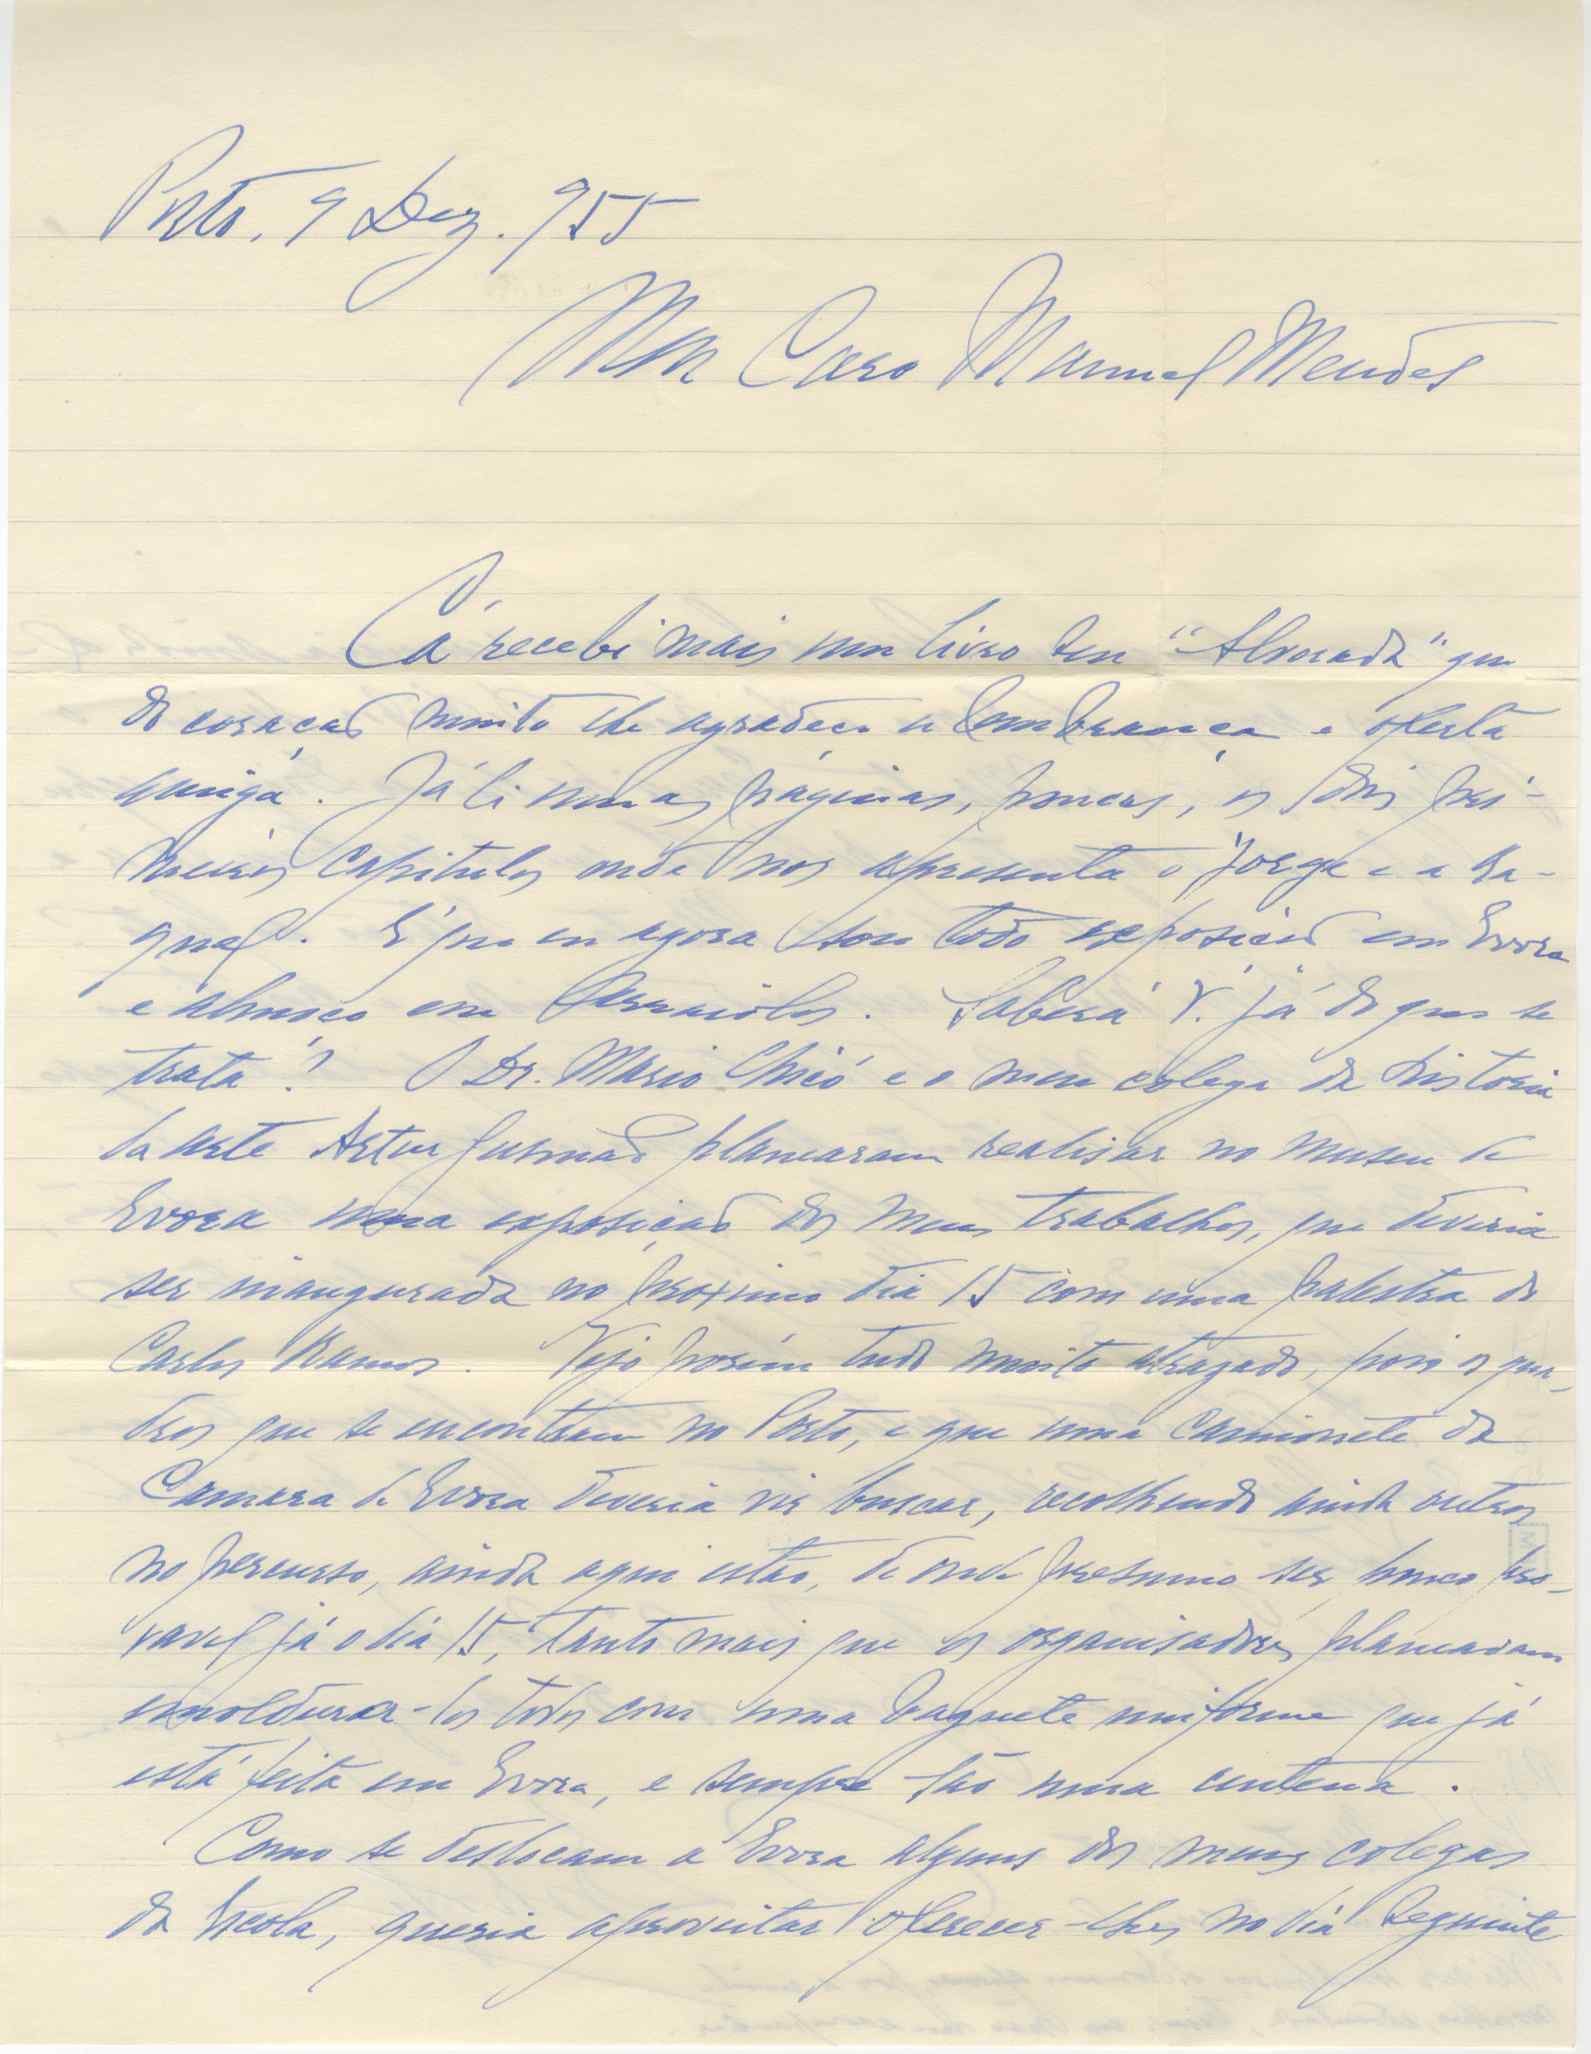 Porto, 9 Dez. 955
Meu Caro Manuel Mendes
Cá recebi mais um livro seu "Alvorada" que
de coração muito lhe agradeço a lembrança e oferta
amiga. Já li umas páginas, poucas, os dois pri-
meiros capitulos onde nos apresenta o Jorge e a Ra-
quel. É que eu agora sou todo exposição em Evora
e almoço em Arraiolos. Saberá V. já do que se
trata? O Dr. Mario Chicó e o meu colega da historia
da arte Artur Gusmão planearam realisar no museu de
Evora uma exposição dos meus trabalhos, que deveria
ser inaugurada no proximo dia 15 com uma palestra do
Carlos Ramos. Vejo porém tudo muito atrazado, pois os qua-
dros que se encontram no Porto, e que uma camionete da
Camara de Evora deveria vir buscar, recolhendo ainda outros
no percurso, ainda aqui estão, de onde presumo ser pouco pro-
vavel já o dia 15, tanto mais que os organisadores planearam
emoldurar-los todos com uma baguete uniforme que já
está feita em Evora, e sempre são uma centena.
Como se deslocam a Evora alguns dos meus colegas
da Escola, queria aproveitar oferecer-lhes no dia seguinte